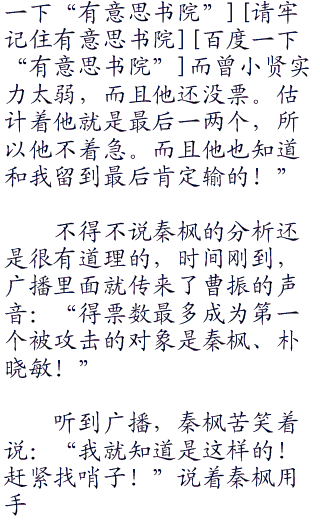 一下“有意思书院”][请牢
记住有意思书院][百度一下
“有意思书院”]而曾小贤实
力太弱，而且他还没票。估
计着他就是最后一两个，所
以他不着急。而且他也知道
和我留到最后肯定输的！”
不得不说秦枫的分析还
是很有道理的，时间刚到，
广播里面就传来了曹振的声
音：“得票数最多成为第一
个被攻击的对象是秦枫、朴
晓敏！”
听到广播，秦枫苦笑着
说：“我就知道是这样的！
赶紧找哨子！”说着秦枫用
手